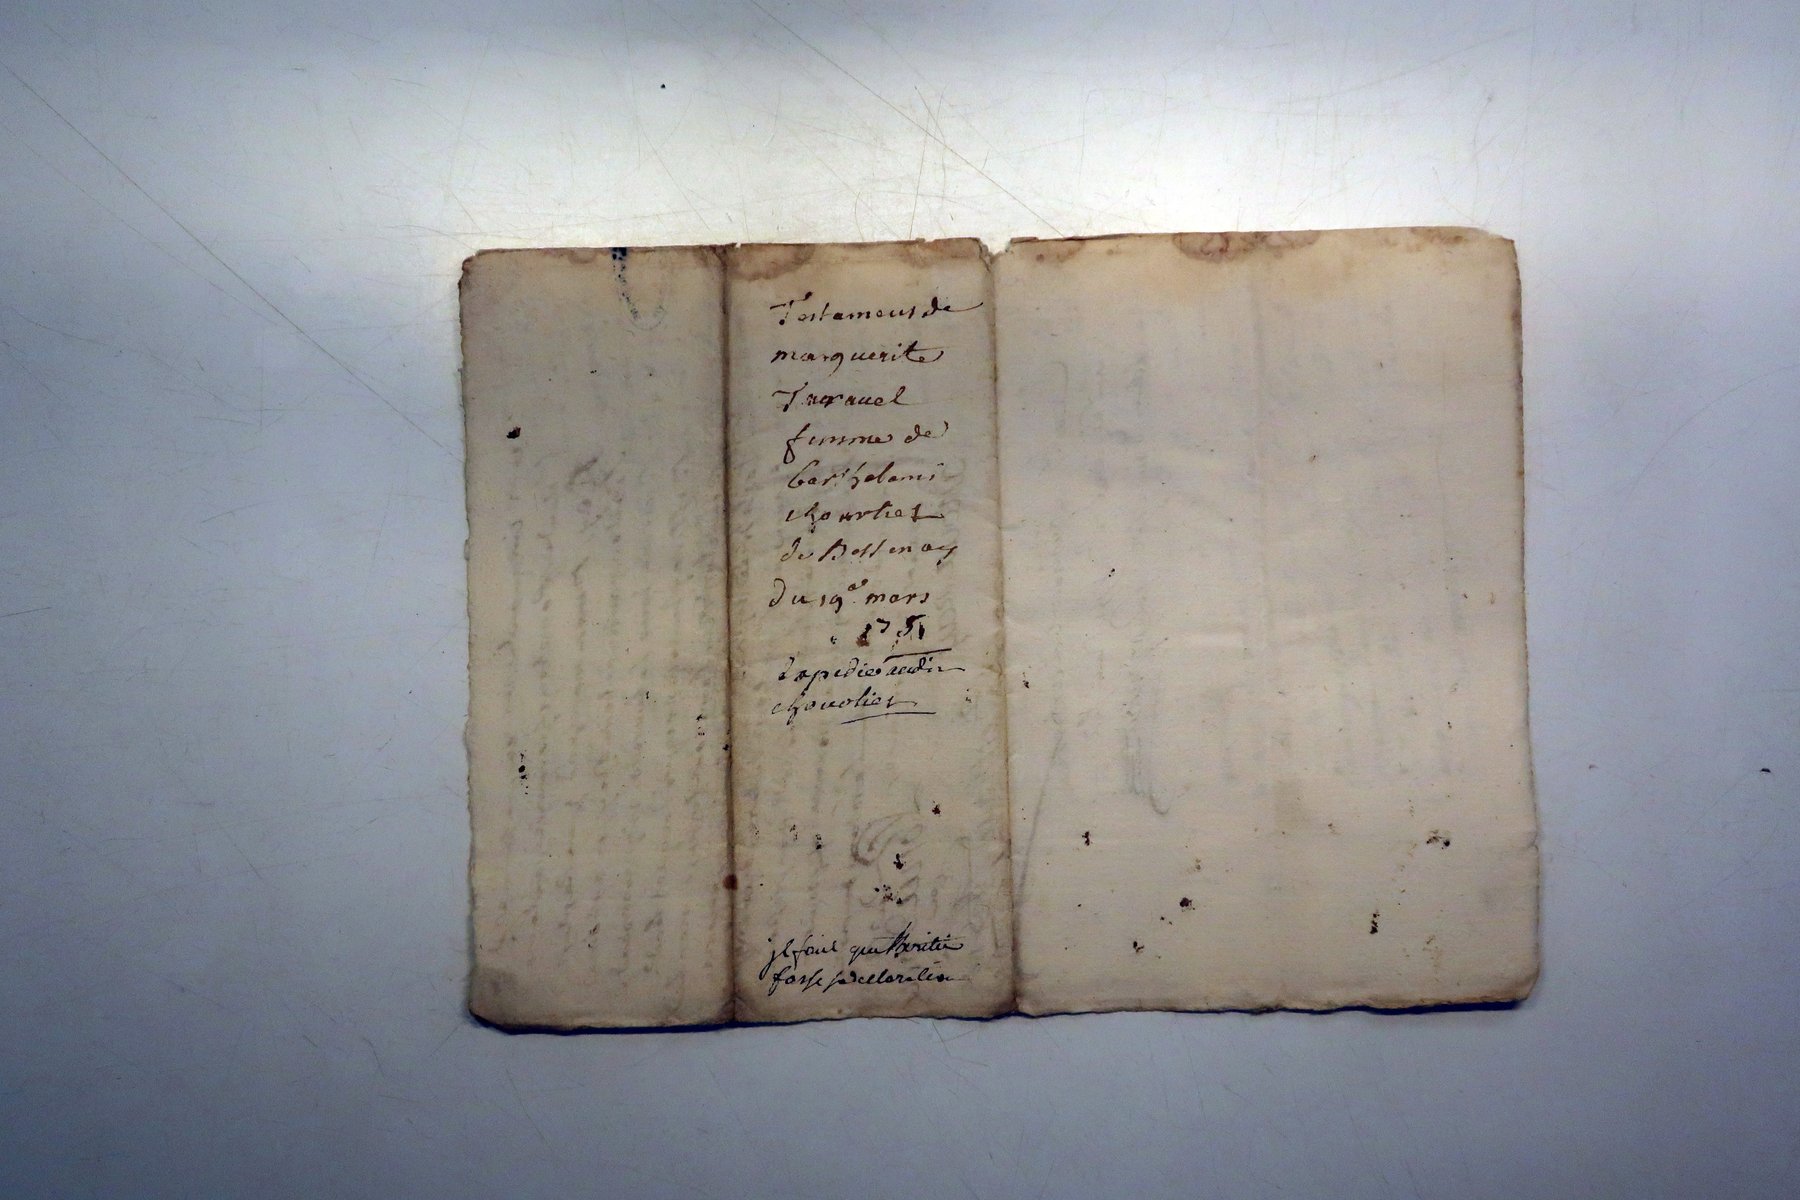 Testament de
marguerite
Taravel
femme de
barthelemi
chourliet
de Bessenay
du 19e mars
1751
Expedie audit
chourliet
jl faut que
fasse sa declaration